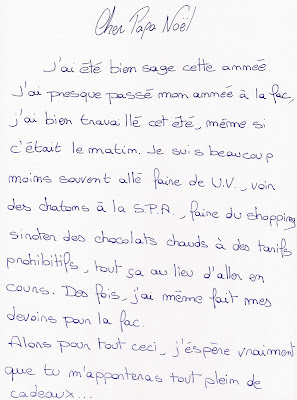 Cher Papa Noël
J'ai été bien sage cette année.
J'ai presque passé mon année à la fac,
j'ai bien travaillé cet été, même si
c'était le matin. Je suis beaucoup
moins souvent allé faire de U.V., voir
des chatons à la S.P.A., faire du shopping
siroter des chocolats chauds à des tarifs
prohibitifs, tout ça au lieu d'aller en
cours. Des fois, j'ai même fait mes
devoirs pour la fac.
Alors pour tout ceci, j'éspère vraiment
que tu m'apporteras tout plein de
cadeaux...